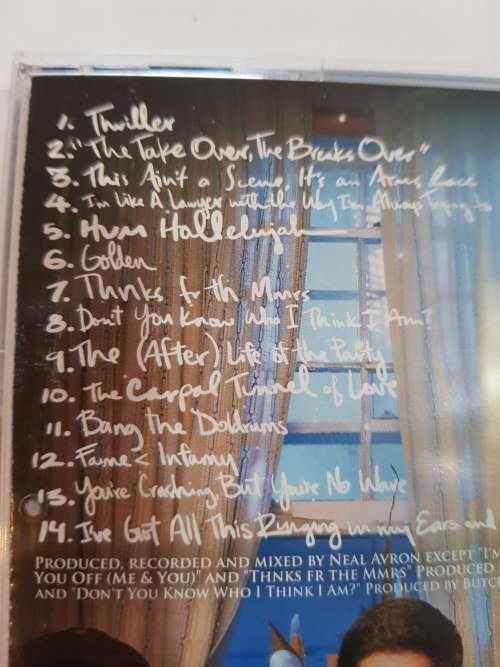 1. Thriller
2. "The Take Over, The Breaks Over"
3. This Ain't a Scene, It's an Arms Race
4. I'm Like A Lawyer with the Way I'm Always Trying to
5. Hum Hallelujah
6. Golden
7. Thnks fr th Mmrs
8. Don't You Know Who I Think I Am?
9. The (After) Life of the Party
10. The Carpal Tunnel of Love
11. Bang the Doldrums
12. Fame < Infamy
13. You're Crashing, But You're No Wave
14. I've Got All This Ringing in my Ears and
Produced, recorded and mixed by Neal Avron except "I'm
You Off (Me & You)" and "Thnks fr the Mmrs" Produced
and "Don't You Know Who I Think I Am?" Produced by Butch